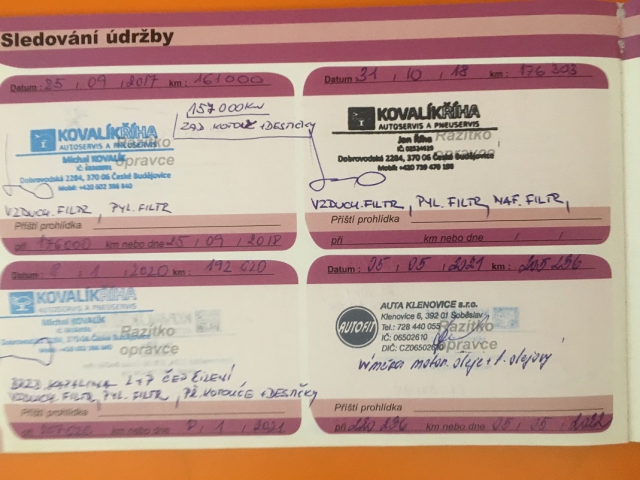 Sledování údržby
Datum : 25 , 09 , 2017 km : 161000
157000 KM
ZAD KOTOUČ + DESTIČKY
KOVALÍKŘÍHA
AUTOSERVIS A PNEUSERVIS
Michal KOVALÍK
Razítko
opravce
Dobrovodská 2284, 370 06 České Budějovice
Mobil: +420 602 396 840
VZDUCH. FILTR, PYL. FILTR
Příští prohlídka
při 176000 km nebo dne 25 , 09 , 2018
Datum : 31 , 10 , 18 km : 176 303
KOVALÍKŘÍHA
AUTOSERVIS A PNEUSERVIS
Jan Říha
Razítko
opravce
Dobrovodská 2284, 370 06 České Budějovice
Mobil: +420 739 470 198
VZDUCH. FILTR, PYL. FILTR, NAF. FILTR,
Příští prohlídka
při km nebo dne / /
Datum : 9 , 1 , 2020 km : 192 620
KOVALÍKŘÍHA
AUTOSERVIS A PNEUSERVIS
Michal KOVALÍK
Razítko
opravce
BRZD KAPALINA L+P ČEP ŘÍZENÍ
VZDUCH. FILTR, PYL. FILTR, PŘ. KOTOUČE + DESTIČKY
Příští prohlídka
při 207620 km nebo dne 9 , 1 , 2021
Datum : 05 , 05 , 2021 km : 205 236
AUTOFIT
AUTA KLENOVICE s.r.o.
Klenovice 6, 392 01 Soběslav
Tel.: 728 440 055
Razítko
IČ: 06502610
opravce
DIČ: CZ06502610
výměna motor. oleje + f. olejový
Příští prohlídka
při 220 236 km nebo dne 05 , 05 , 2022